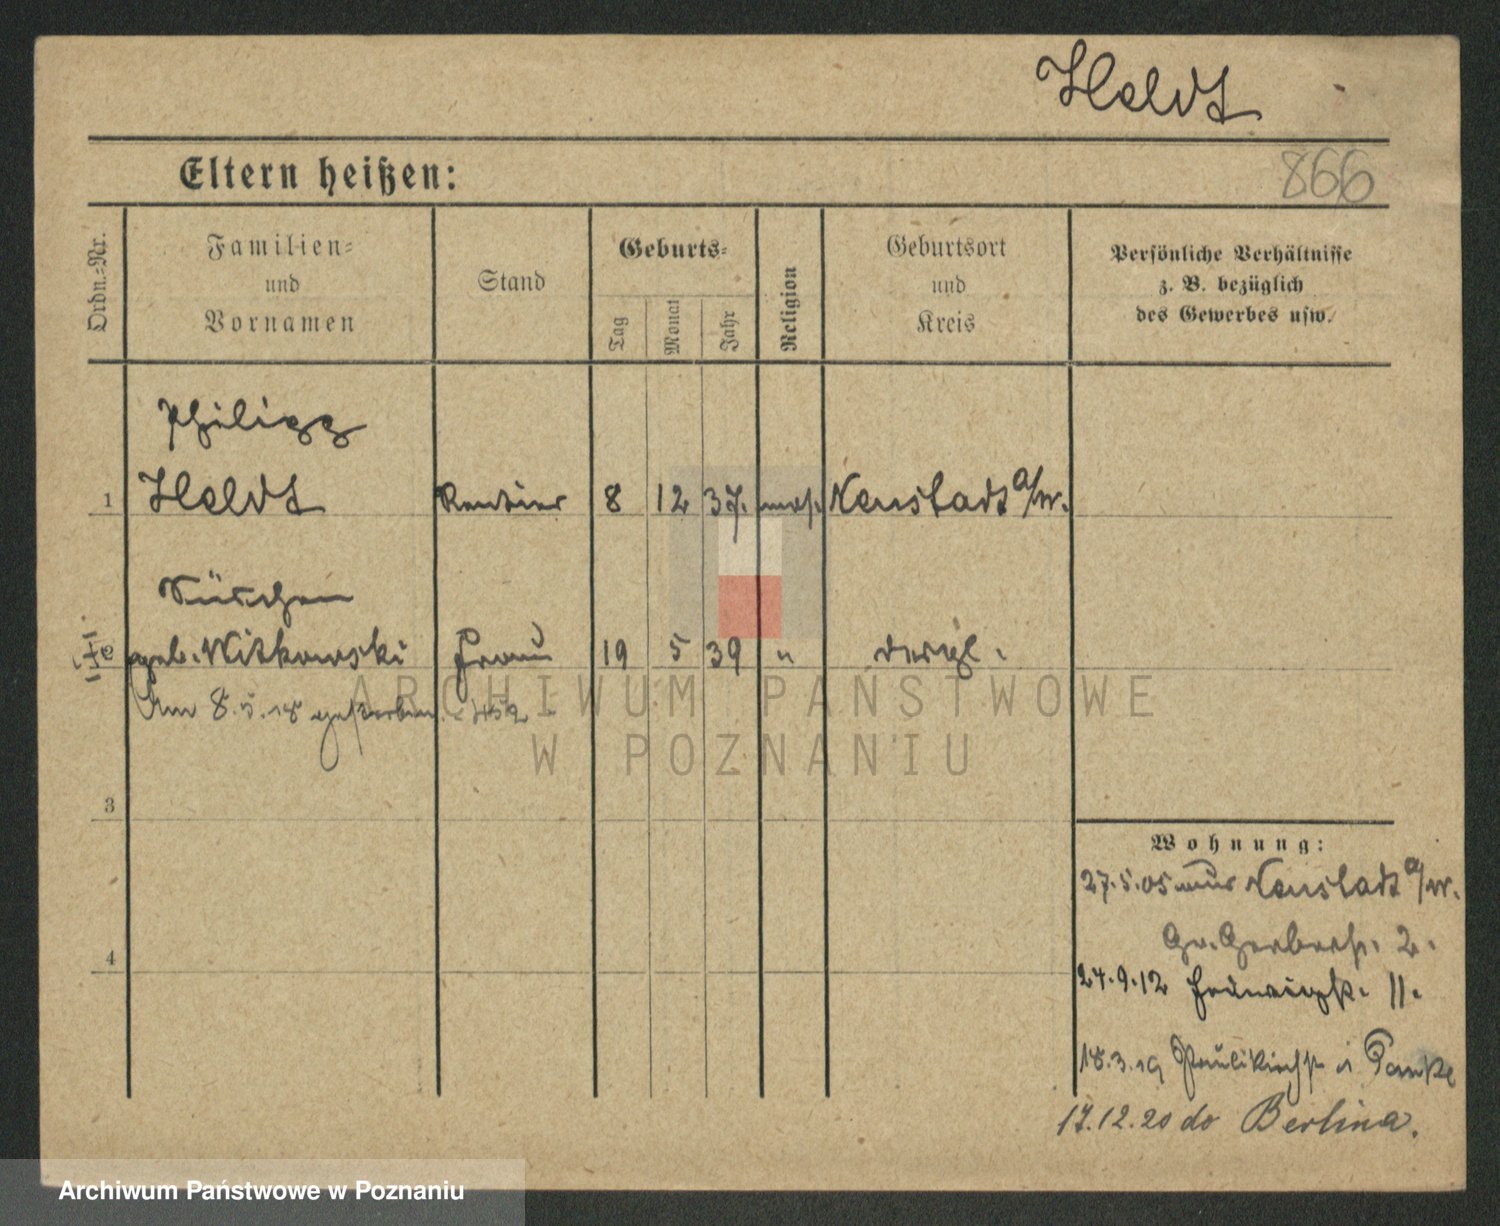 Heldt
866
Eltern heißen:
Ordn.-Nr.
Familien-
und
Vornamen
Stand
Geburts-
Tag
Monat
Jahr
Religion
Geburtsort
und
Kreis
Persönliche Verhältnisse
z. B. bezüglich
des Gewerbes usw.
Philipp
1 Heldt Rentier 8 12 37. mos. Neustadt a/W.
geb. Witkowski Frau 19 5 39 " desgl.
Am 8.5.18 gestorben
3
4
Wohnung:
27.5.05 aus Neustadt a/W.
Gr. Gerberstr. 2.
24.9.12 11.
18.3.19 Paulikirchstr
17.12.20 do Berlina.
ARCHIWUM PAŃSTWOWE
W POZNANIU
Archiwum Państwowe w Poznaniu